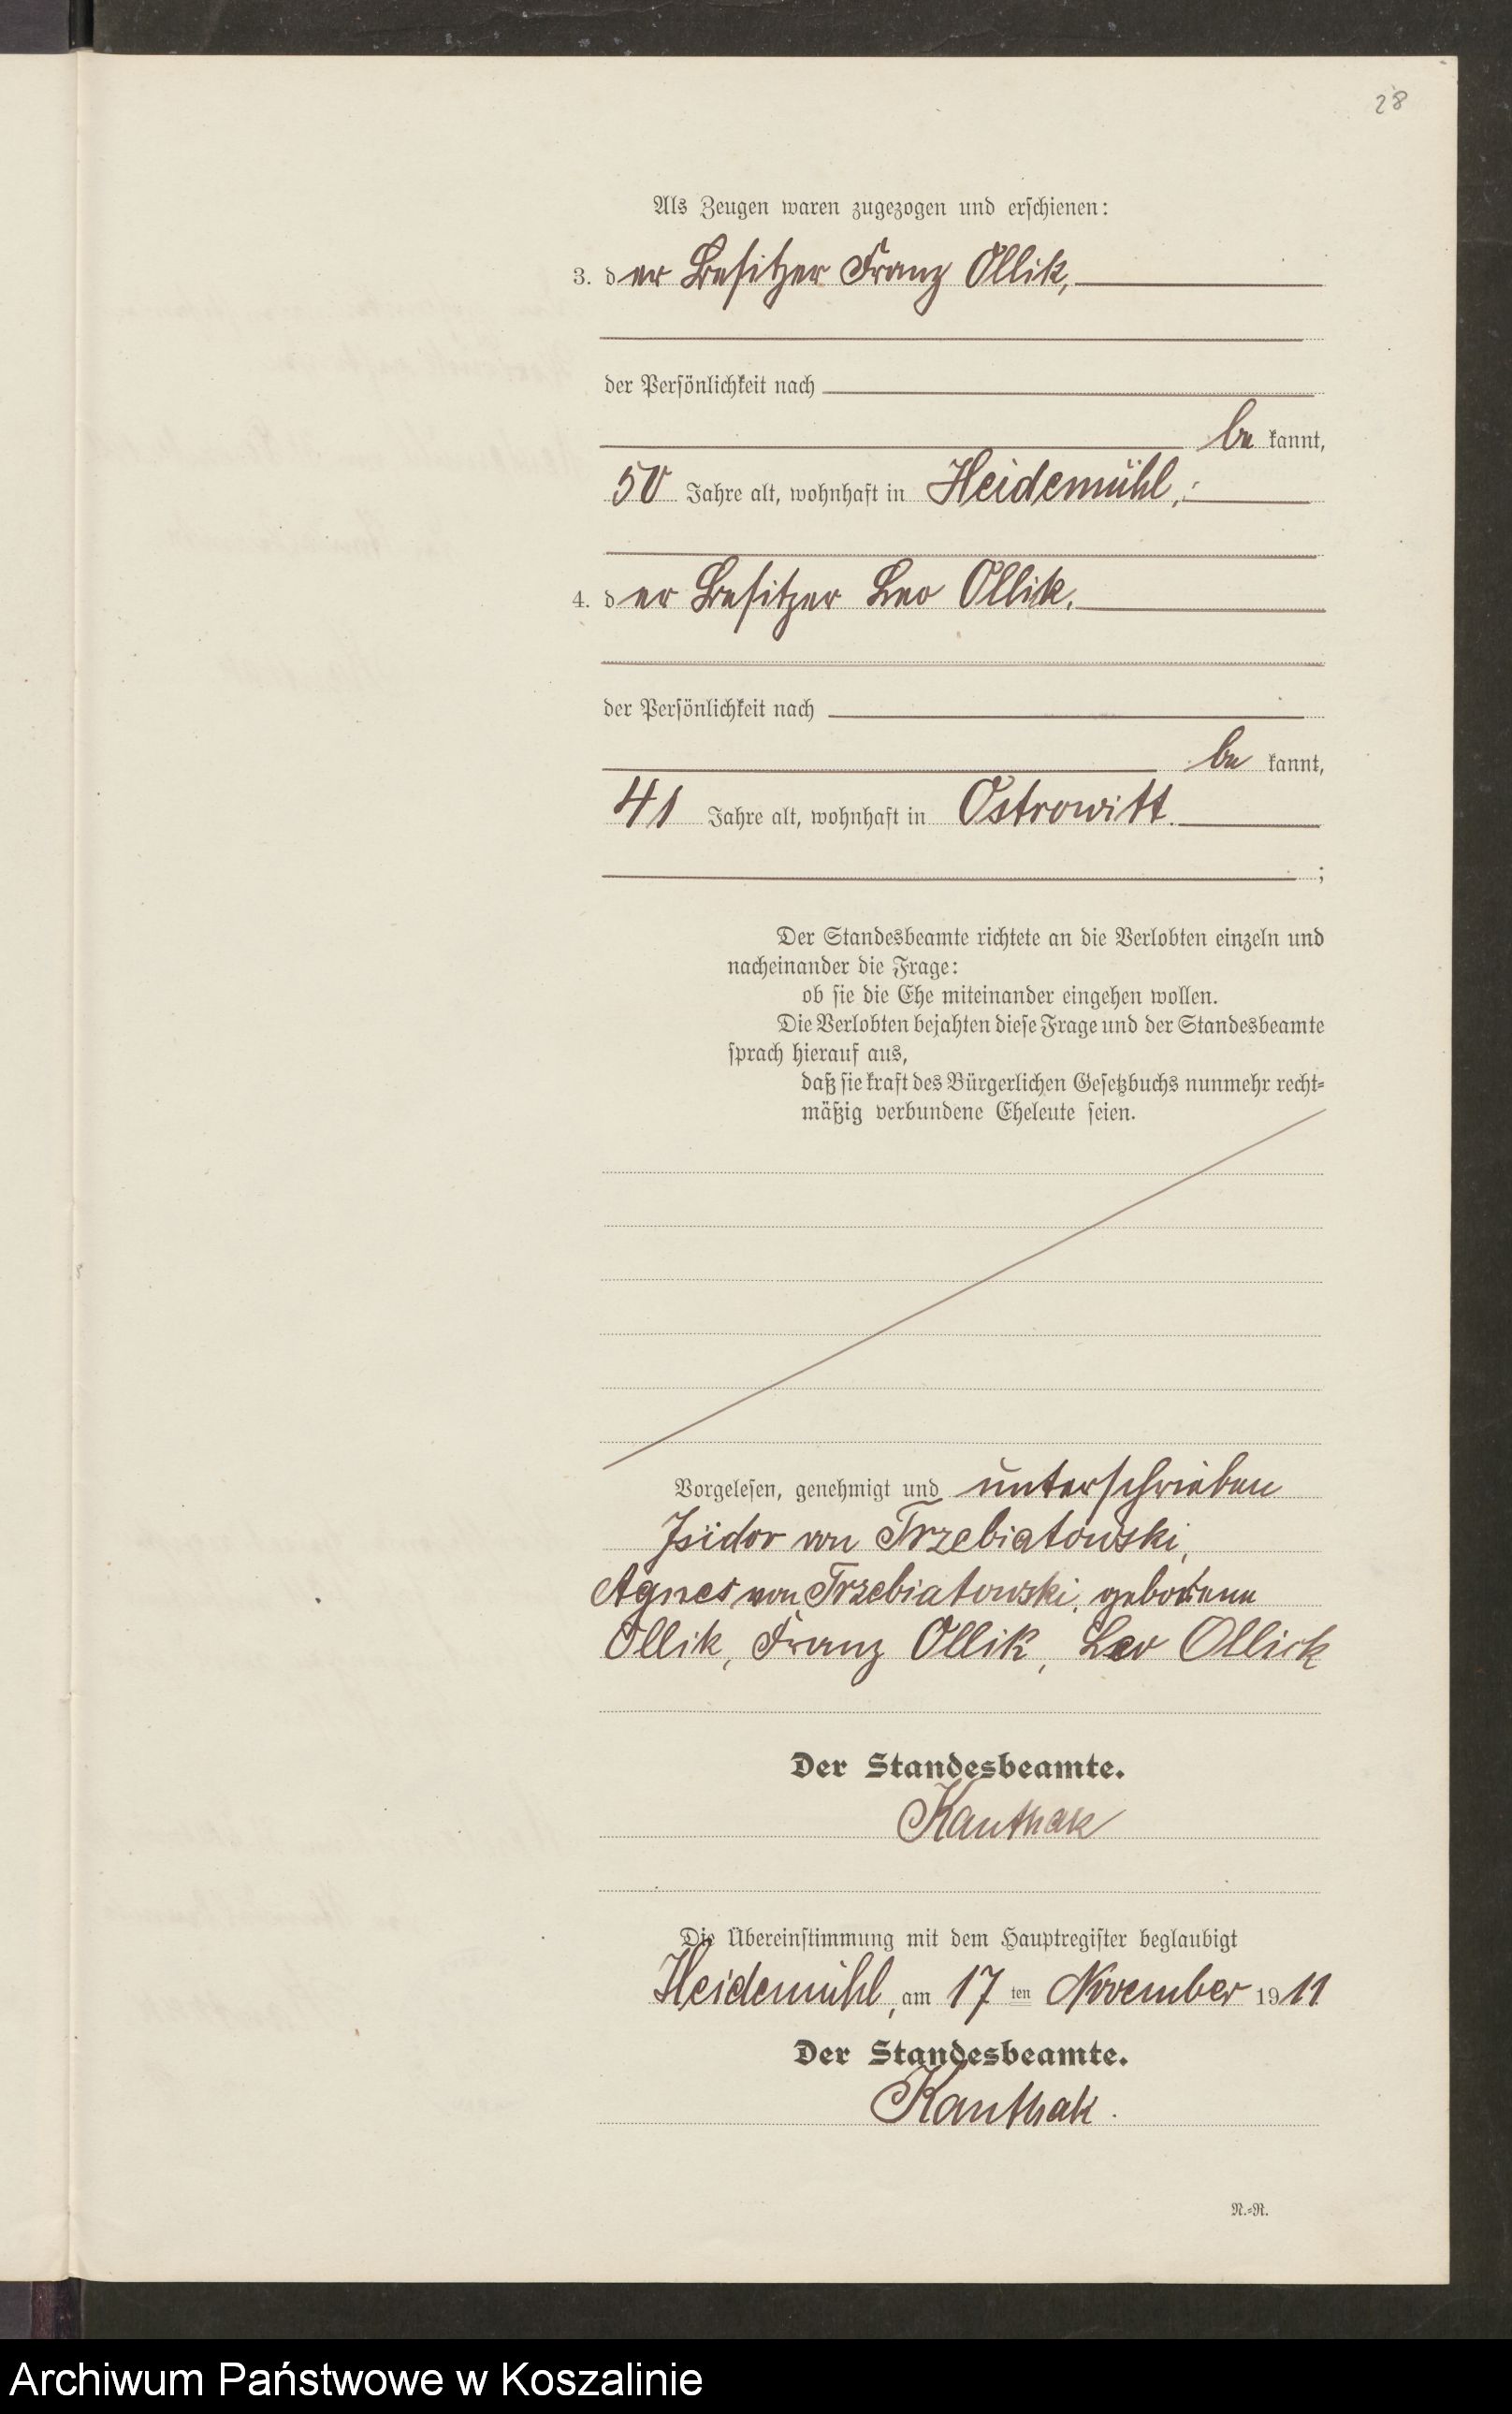 28
Als Zeugen waren zugezogen und erschienen:
3. der Besitzer Franz Ollik,
der Persönlichkeit nach
be kannt,
50 Jahre alt, wohnhaft in Heidemühl,
4. der Besitzer Leo Ollik.
der Persönlichkeit nach
be kannt,
41 Jahre alt, wohnhaft in Ostrowitt.
;
Der Standesbeamte richtete an die Verlobten einzeln und
nacheinander die Frage:
ob sie die Ehe miteinander eingehen wollen.
Die Verlobten bejahten diese Frage und der Standesbeamte
sprach hierauf aus,
daß sie kraft des Bürgerlichen Gesetzbuchs nunmehr recht-
mäßig verbundene Eheleute seien.
Vorgelesen, genehmigt und unterschrieben
Isidor von Trzebiatowski,
Agnes von Trzebiatowski, geborene
Ollik, Franz Ollik, Leo Ollick
Der Standesbeamte.
Kauthak
Die Übereinstimmung mit dem Hauptregister beglaubigt
Heidemühl, am 17 ten November 1911
Der Standesbeamte.
Kauthak.
N.-R.
Archiwum Państwowe w Koszalinie